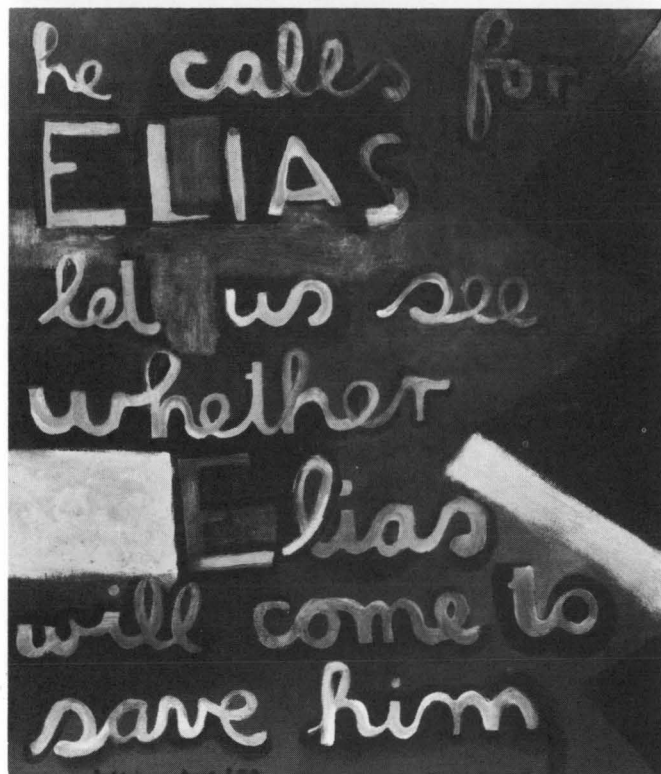 he calls for
ELIAS
let us see
whether
Elias
will come to
save him